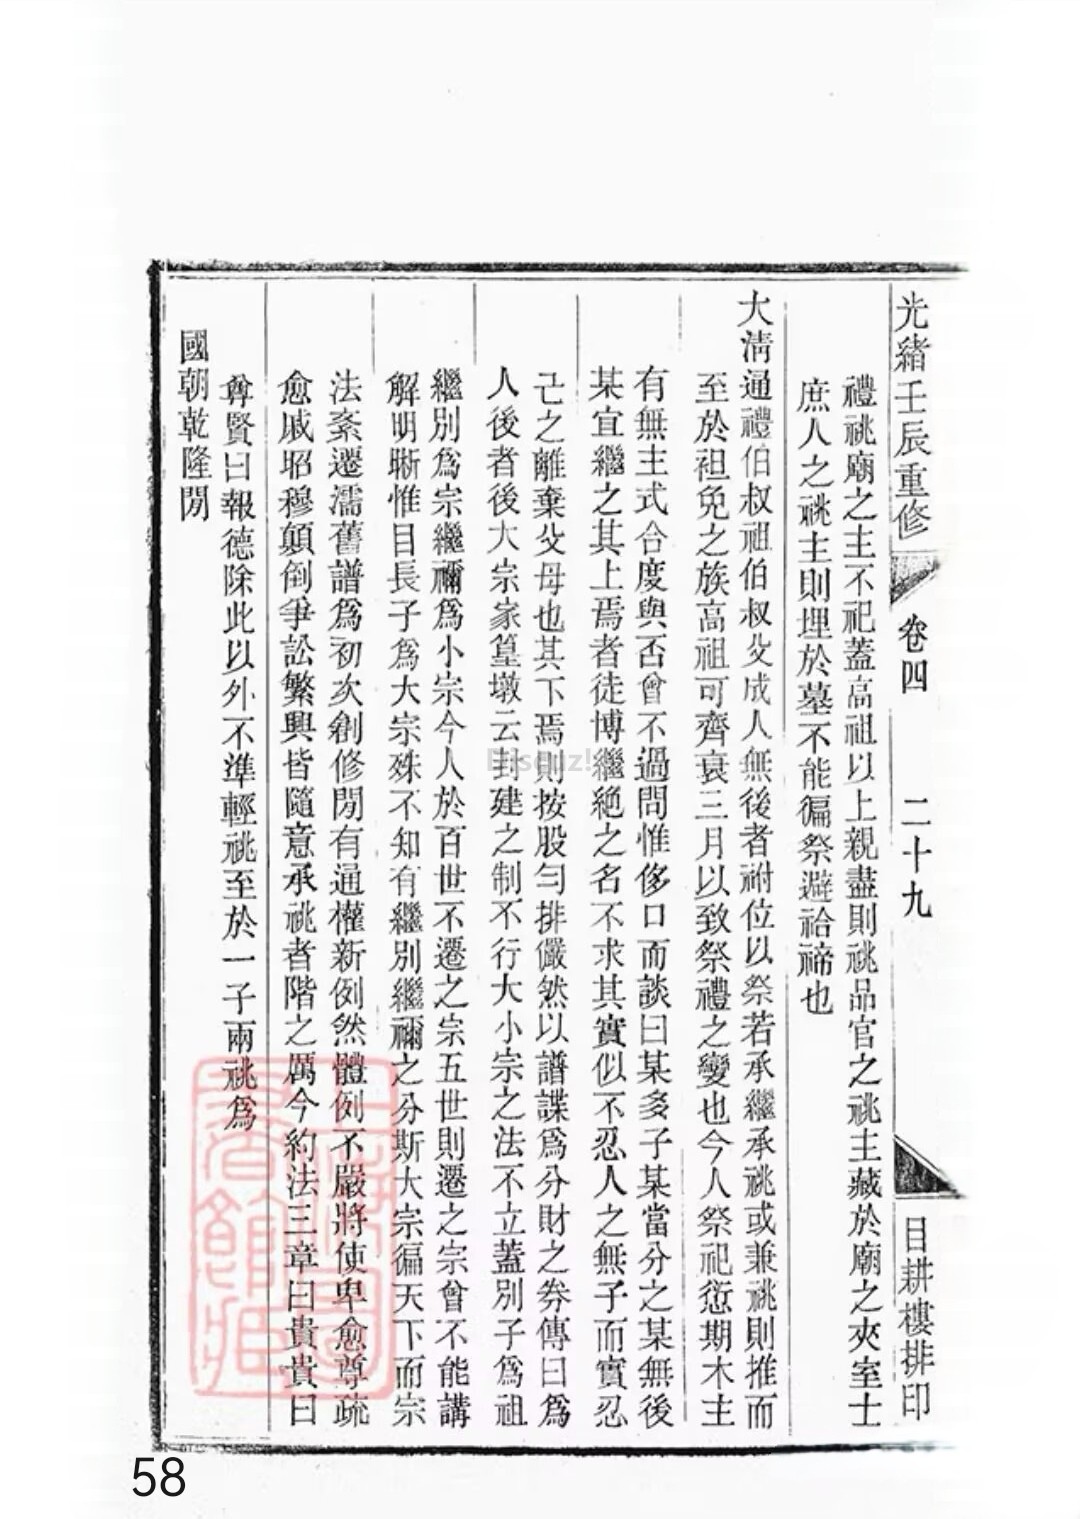 光緒壬辰重修 卷四 二十九 目耕樓排印
禮祧廟之主不祀蓋高祖以上親盡則祧品官之祧主藏於廟之夾室士
庶人之祧主則埋於墓不能徧祭避祫禘也
大清通禮伯叔祖伯叔父成人無後者祔位以祭若承繼承祧或兼祧則推而
至於袒免之族高祖可齊衰三月以致祭禮之變也今人祭祀愆期木主
有無主式合度與否曾不過問惟侈口而談曰某多子某當分之某無後
某宜繼之其上焉者徒博繼絶之名不求其實似不忍人之無子而實忍
己之離棄父母也其下焉則按股勻排儼然以譜諜爲分財之券傳曰爲
人後者後大宗家篁墩云封建之制不行大小宗之法不立蓋別子爲祖
繼別爲宗繼禰爲小宗今人於百世不遷之宗五世則遷之宗曾不能講
解明晰惟目長子爲大宗殊不知有繼別繼禰之分斯大宗徧天下而宗
法紊遷濡舊譜爲初次創修閒有通權新例然體例不嚴將使卑愈尊疏
愈戚昭穆顛倒爭訟繁興皆隨意承祧者階之厲今約法三章曰貴貴曰
尊賢曰報德除此以外不準輕祧至於一子兩祧爲
國朝乾隆閒
Discuz!
58